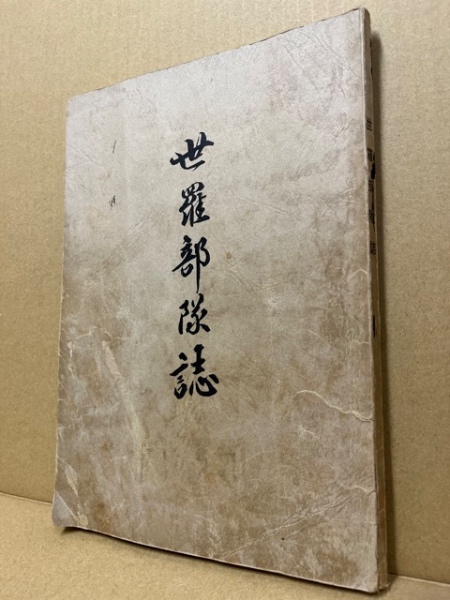 世羅部隊誌